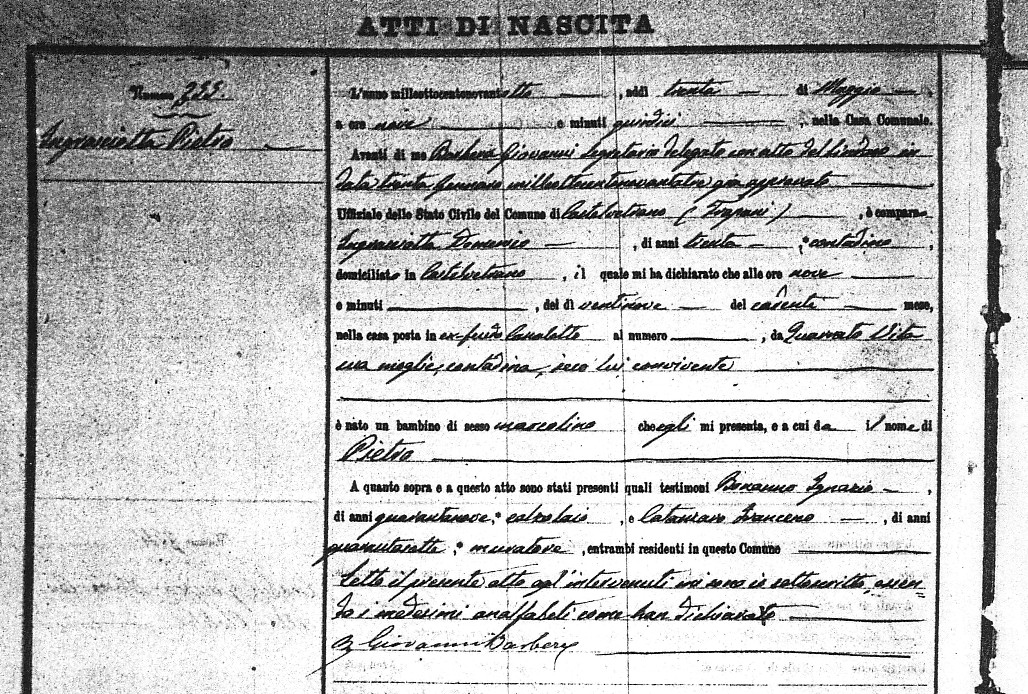 ATTI DI NASCITA
Numero 255.
Ingrasciotta Pietro
L'anno milleottocentonovantotto, addì trenta di Maggio
a ore nove e minuti quindici, nella Casa Comunale.
Avanti di me Barbera Giovanni Segretario delegato con atto del Sindaco in
data trenta Gennaro milleottocentonovantatre già approvato
Uffiziale dello Stato Civile del Comune di Castelvetrano (Trapani), è comparso
Ingrasciotta Domenico, di anni trenta, contadino,
domiciliato in Castelvetrano, il quale mi ha dichiarato che alle ore nove
e minuti, del dì ventinove del corrente mese,
nella casa posta in ex-feudo al numero, da Quarrato Vita
sua moglie, contadina, seco lui convivente
è nato un bambino di sesso mascolino che egli mi presenta, e a cui da il nome di
Pietro
A quanto sopra e a questo atto sono stati presenti quali testimoni Bonanno Ignazio,
di anni quarantanove, calzolaio, e Catanzaro Francesco, di anni
quarantasette, muratore, entrambi residenti in questo Comune
Letto il presente atto agl'intervenuti mi sono io sottoscritto, essen
do i medesimi analfabeti come han dichiarato
Giovanni Barbera